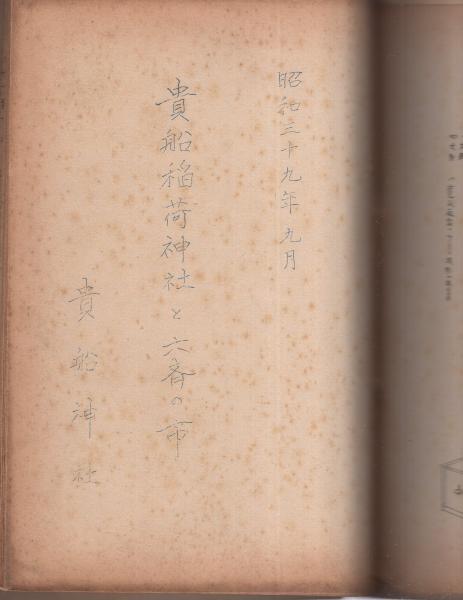 昭和三十九年九月
貴船稲荷神社と六斎の市
貴船神社